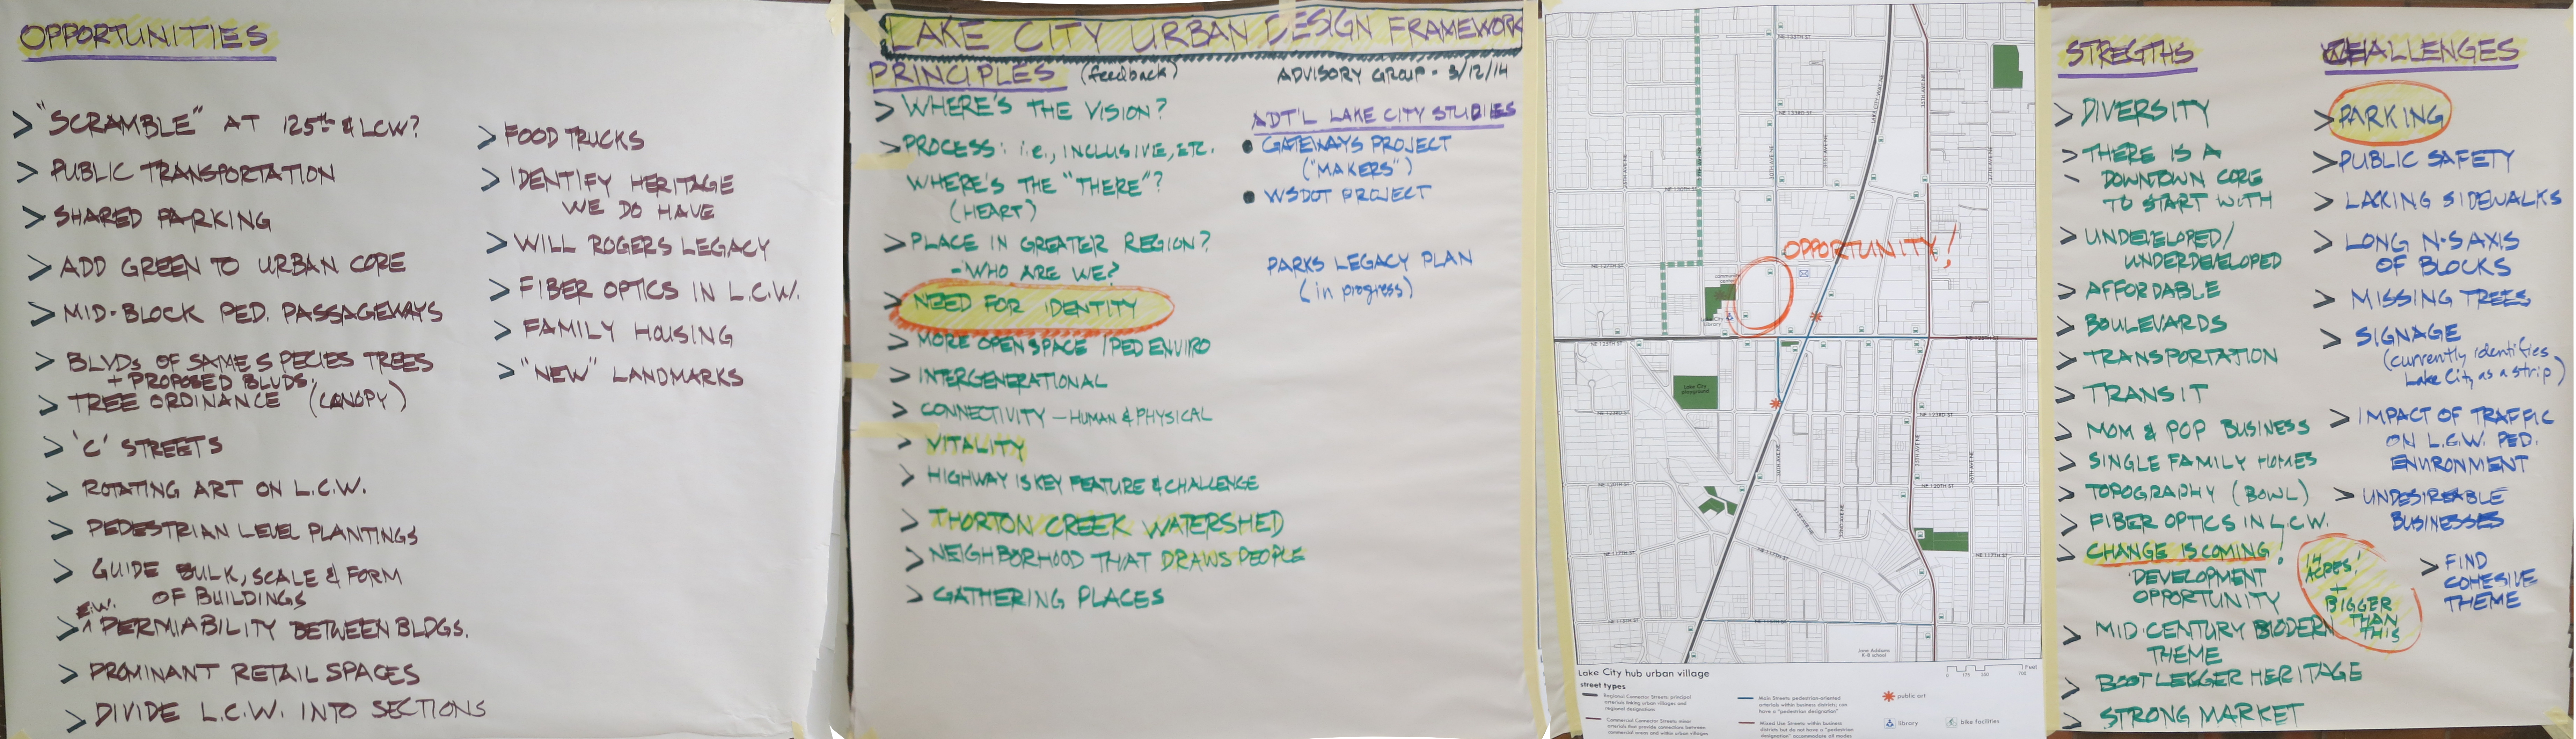 OPPORTUNITIES
> "SCRAMBLE" AT 125th & LCW?
> PUBLIC TRANSPORTATION
> SHARED PARKING
> ADD GREEN TO URBAN CORE
> MID-BLOCK PED. PASSAGEWAYS
> BLVDs OF SAME SPECIES TREES
+ PROPOSED BLVDS.
> TREE ORDINANCE (CANOPY)
> 'C' STREETS
> ROTATING ART ON L.C.W.
> PEDESTRIAN LEVEL PLANTINGS
> GUIDE BULK, SCALE & FORM
OF BUILDINGS
E.W.
> ^ PERMIABILITY BETWEEN BLDGS.
> PROMINANT RETAIL SPACES
> DIVIDE L.C.W. INTO SECTIONS
> FOOD TRUCKS
> IDENTIFY HERITAGE
WE DO HAVE
> WILL ROGERS LEGACY
> FIBER OPTICS IN L.C.W.
> FAMILY HOUSING
> "NEW" LANDMARKS
LAKE CITY URBAN DESIGN FRAMEWORK
PRINCIPLES (feedback)
ADVISORY GROUP - 3/12/14
> WHERE'S THE VISION?
> PROCESS: i.e., INCLUSIVE, ETC.
WHERE'S THE "THERE"?
(HEART)
> PLACE IN GREATER REGION?
- WHO ARE WE?
> NEED FOR IDENTITY
> MORE OPEN SPACE / PED ENVIRO
> INTERGENERATIONAL
> CONNECTIVITY - HUMAN & PHYSICAL
> VITALITY
> HIGHWAY IS KEY FEATURE & CHALLENGE
> THORTON CREEK WATERSHED
> NEIGHBORHOOD THAT DRAWS PEOPLE
> GATHERING PLACES
ADT'L LAKE CITY STUDIES
• GATEWAYS PROJECT
("MAKERS")
• WSDOT PROJECT
PARKS LEGACY PLAN
(in progress)
OPPORTUNITY!
NE 125TH ST
NE 123RD ST
NE 120TH ST
NE 117TH ST
Lake City
playground
Jane Addams
K-8 school
Lake City hub urban village
street types
Regional Connector Streets: principal
arterials linking urban villages and
regional designations
Commercial Connector Streets: minor
arterials that provide connections between
commercial areas and within urban villages
Main Streets: pedestrian-oriented
arterials within business districts; can
have a "pedestrian designation"
Mixed Use Streets: within business
districts but do not have a "pedestrian
designation" accommodate all modes
public art
library
bike facilities
Feet
STREGTHS
> DIVERSITY
> THERE IS A
DOWNTOWN CORE
TO START WITH
> UNDEVELOPED/
UNDERDEVELOPED
> AFFORDABLE
> BOULEVARDS
> TRANSPORTATION
> TRANSIT
> MOM & POP BUSINESS
> SINGLE FAMILY HOMES
> TOPOGRAPHY (BOWL)
> FIBER OPTICS IN L.C.W.
> CHANGE IS COMING!
DEVELOPMENT
OPPORTUNITY
14
ACRES!
+
BIGGER
THAN
THIS
> MID-CENTURY MODERN
THEME
> BOOTLEGGER HERITAGE
> STRONG MARKET
CHALLENGES
> PARKING
> PUBLIC SAFETY
> LACKING SIDEWALKS
> LONG N-S AXIS
OF BLOCKS
> MISSING TREES
> SIGNAGE
(currently identifies
Lake City as a strip)
> IMPACT OF TRAFFIC
ON L.C.W. PED.
ENVIRONMENT
> UNDESIREABLE
BUSINESSES
> FIND
COHESIVE
THEME